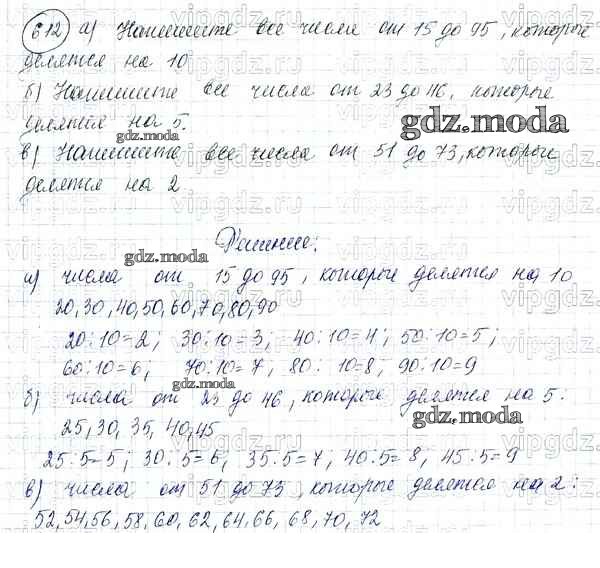 612 а) Напишите все числа от 15 до 95, которые
делятся на 10
б) Напишите все числа от 23 до 46, которые
делятся на 5.
в) Напишите все числа от 51 до 73, которые
делятся на 2
Решение:
а) числа от 15 до 95, которые делятся на 10
20, 30, 40, 50, 60, 70, 80, 90
20:10=2; 30:10=3; 40:10=4; 50:10=5;
60:10=6, 70:10=7, 80:10=8; 90:10=9
б) числа от 23 до 46, которые делятся на 5:
25, 30, 35, 40, 45
25:5=5; 30:5=6; 35:5=7; 40:5=8; 45:5=9
в) числа от 51 до 73, которые делятся на 2:
52, 54, 56, 58, 60, 62, 64, 66, 68, 70, 72
gdz.moda
gdz.moda
gdz.moda
gdz.moda
gdz.moda
vipgdz.ru